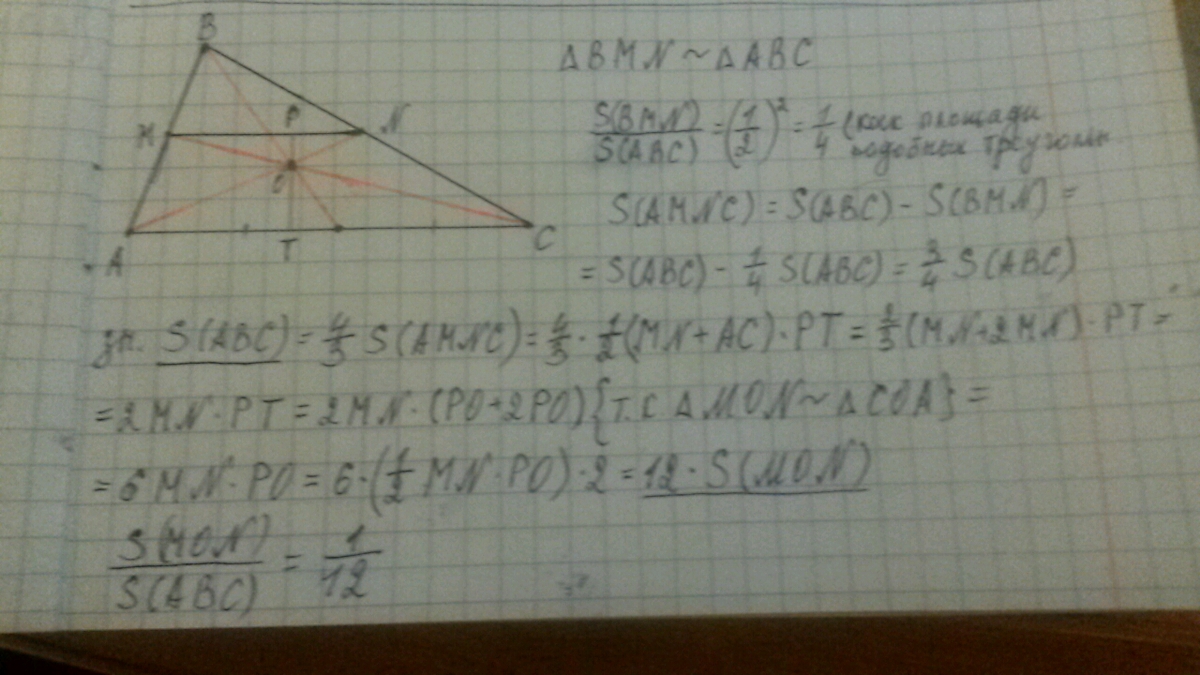 B
M
P
N
O
A
T
C
∆BMN ~ ∆ABC
S(BMN)/S(ABC) = (1/2)² = 1/4 (как площади
подобных треугольн.
S(AMNC) = S(ABC) - S(BMN) =
= S(ABC) - 1/4 S(ABC) = 3/4 S(ABC)
зн. S(ABC) = 4/3 S(AMNC) = 4/3 · 1/2 (MN + AC) · PT = 2/3 (MN + 2MN) · PT =
= 2MN · PT = 2MN · (PO + 2PO) {т.к ∆MON ~ ∆COA} =
= 6MN · PO = 6 · (1/2 MN · PO) · 2 = 12 · S(MON)
S(MON)/S(ABC) = 1/12